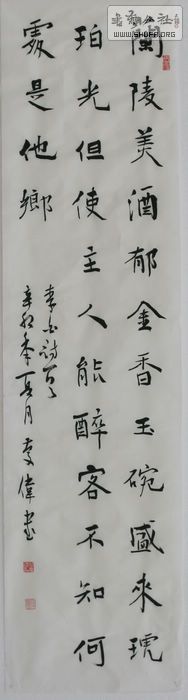 蘭陵美酒郁金香玉碗盛來琥
珀光但使主人能醉客不知何
處是他鄉
李白詩一首
辛卯年夏月李偉書
WWW.SHUFA.ORG